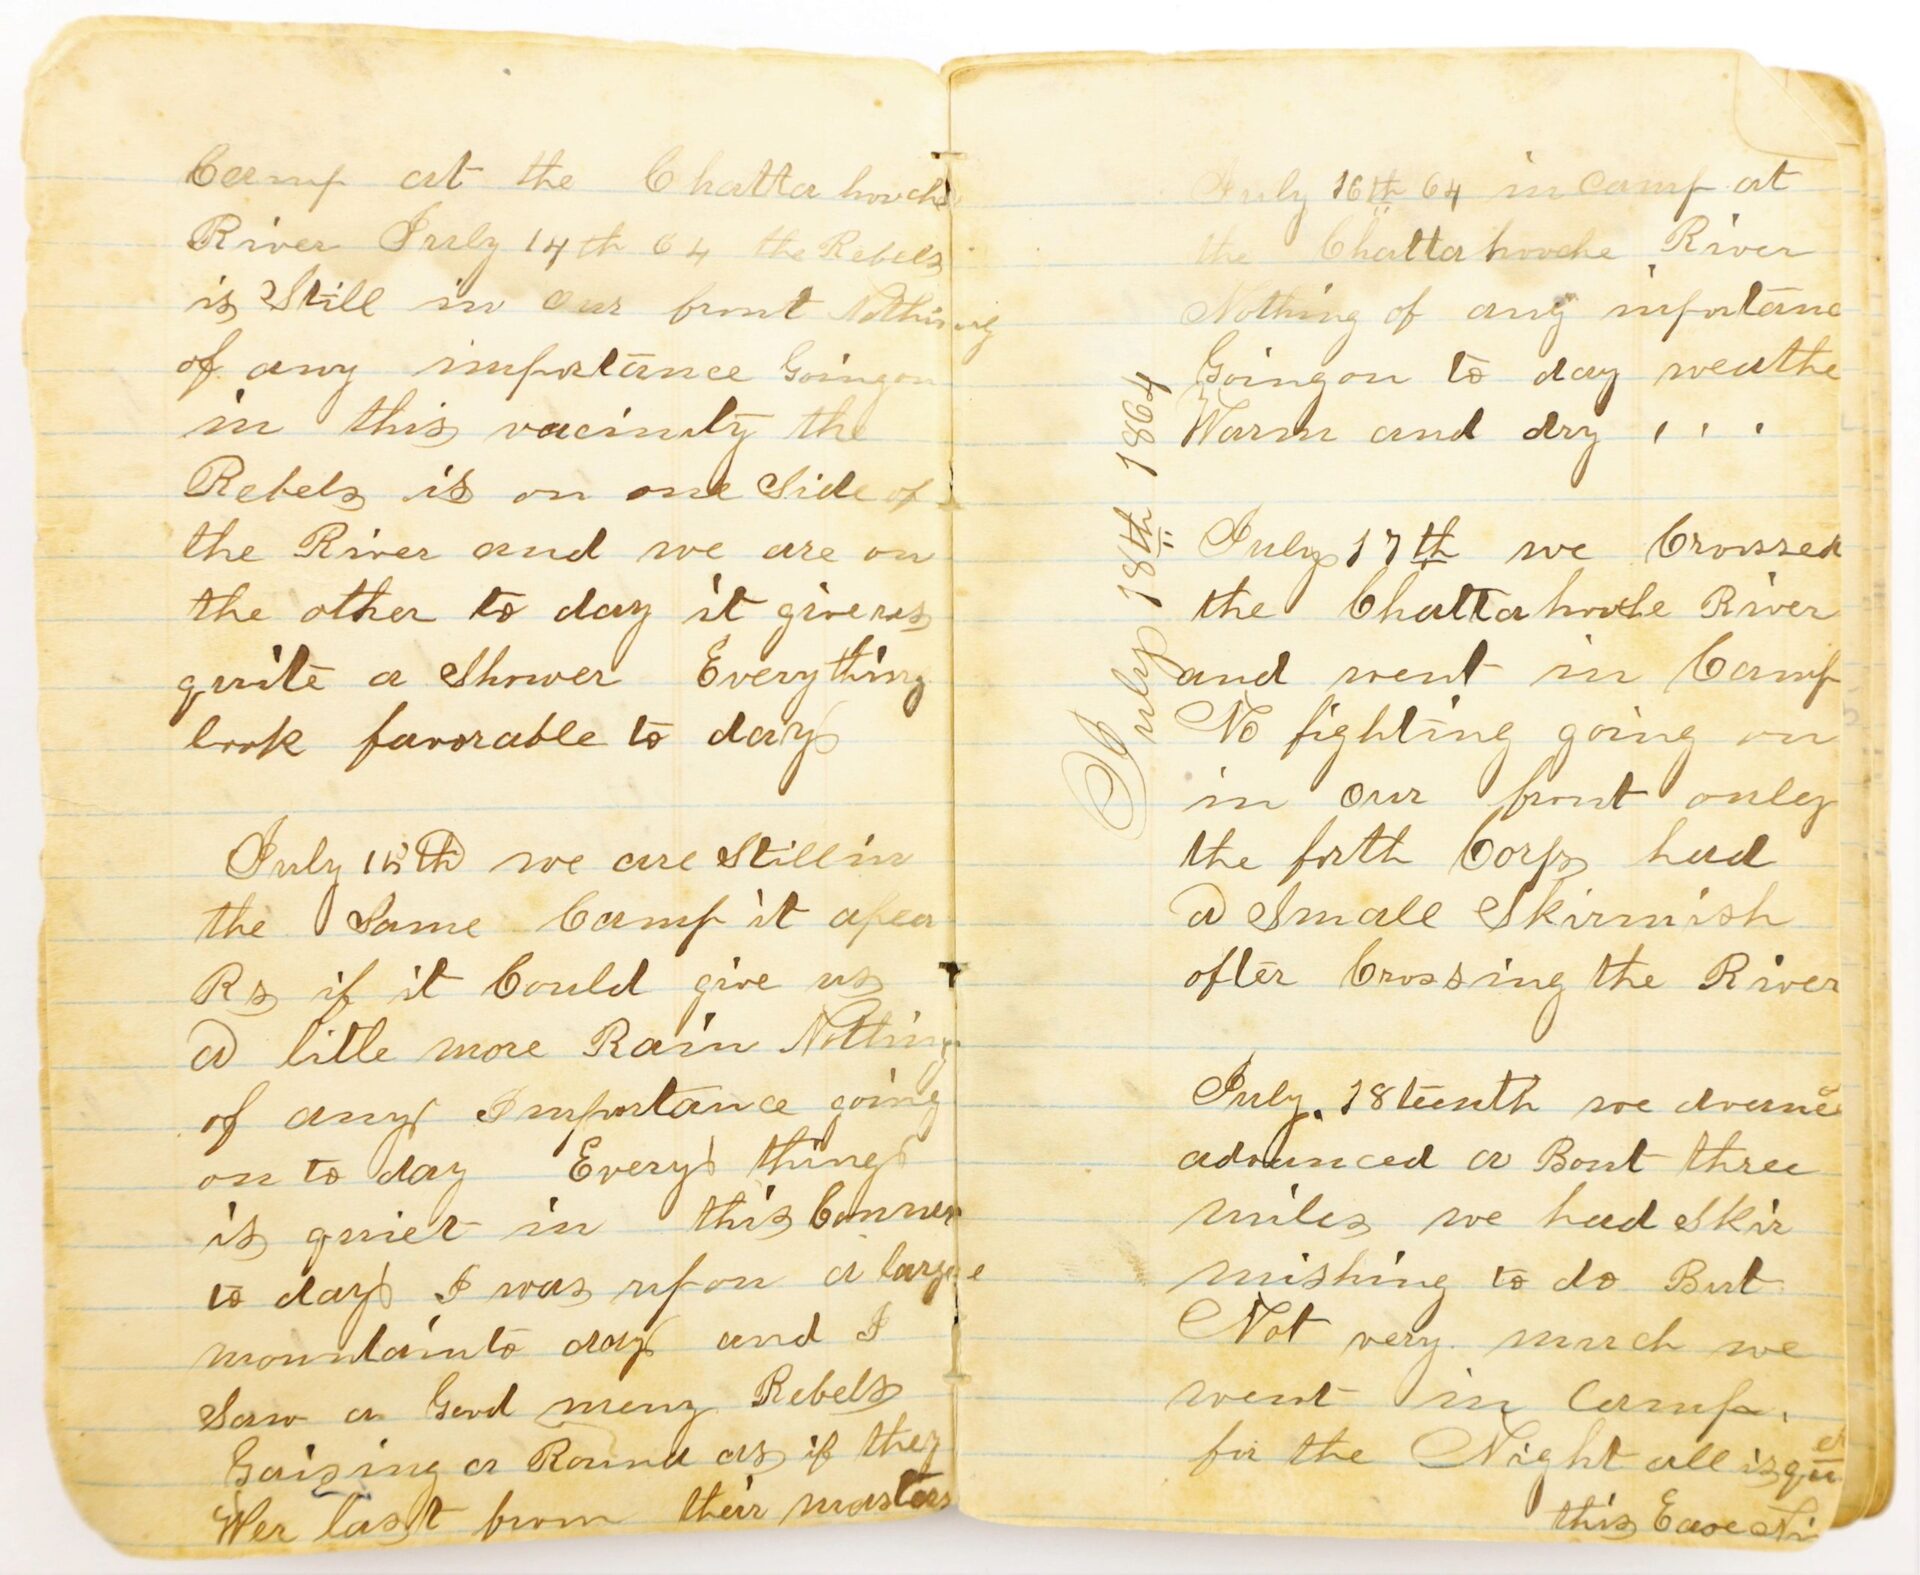 Camp at the Chattahooche
River July 14th 64 the Rebels
is Still in our front Nothing
of any importance Going on
in this vacinity the
Rebels is on one Side of
the River and we are on
the other to day it give us
quite a Shower Every thing
look favorable to day
July 15th we are Still in
the Same Camp it apea
Rs if it Could give us
a litle more Rain Nothing
of any Importance going
on to day Every thing
is quiet in this Conner
to day I was up on a large
mountain to day and I
Saw a Good meny Rebels
Gaizing a Round as if they
Wer last from their masters
July 16th 64 in camp at
the Chattahooche River
Nothing of any inportanc
Going on to day weathe
Warm and dry
July 18th 1864
July 17th we Crossed
the Chattahooche River
and went in Camp
No fighting going on
in our front only
the forth Corps had
a Small Skirmish
after Crossing the River
July 18teenth we
advainced a Bout three
miles we had Skir
mishing to do But
Not very much we
went in Camp.
for the Night all is quiet
this Eave Ni